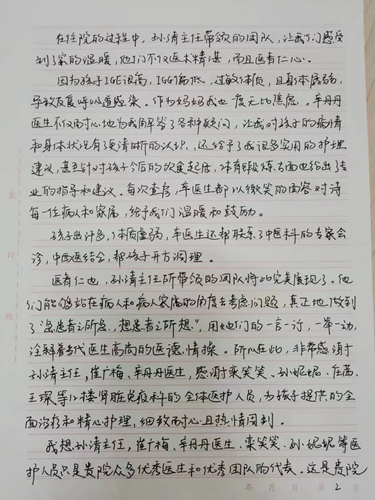 在住院的过程中，孙清主任带领的团队，让我们感受
到了家的温暖，他们不仅医术精湛，而且医者仁心。
因为孩子IGE很高，IGG偏低，过敏体质，且身体虚弱，
导致反复呼吸道感染。作为妈妈我也一度无比焦虑。牟丹丹
医生不仅耐心地为我解答了各种疑问，让我对孩子的病情
和身体状况有了更清晰的认识，还给予了我很多实用的护理
建议，甚至针对孩子今后的饮食起居、体育锻炼方面也给出了专
业的指导和建议。每次查房，牟医生都以微笑的面容对待
每一位病人和家属，给予我们温暖和鼓励。
孩子出汗多，体质虚弱，牟医生还帮联系了中医科的专家会
诊，中西医结合，帮孩子开方调理。
医者仁也，孙清主任所带领的团队将此完美展现了。他
们能够站在病人和病人家属的角度去考虑问题，真正地做到
了“急患者之所急，想患者之所想”，用他们的一言一行，一举一动，
诠释着当代医生高尚的医德情操。所以在此，非常感谢于
孙清主任，崔广梅、牟丹丹医生，感谢栾笑笑、孙妮妮、庄茜、
王琛等12楼肾脏免疫科的全体医护人员，为孩子提供的全
面治疗和精心护理，细致耐心且热情周到。
我想孙清主任，崔广梅、牟丹丹医生、栾笑笑、孙妮妮等医
护人员只是贵院众多优秀医生和优秀团队的代表。这是贵院
年 月 日 第 2 页